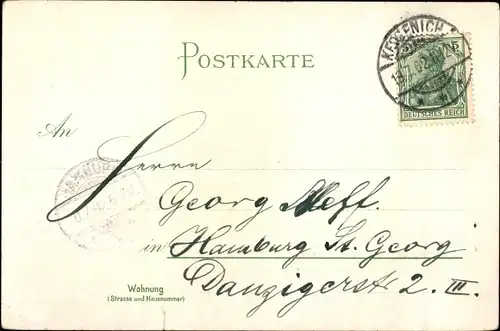 POSTKARTE
KESSENICH
DEUTSCHES REICH
An
Herrn
Georg Neff.
in Hamburg St. Georg
Danzigerstr 2. III.
Wohnung
(Strasse und Hausnummer)